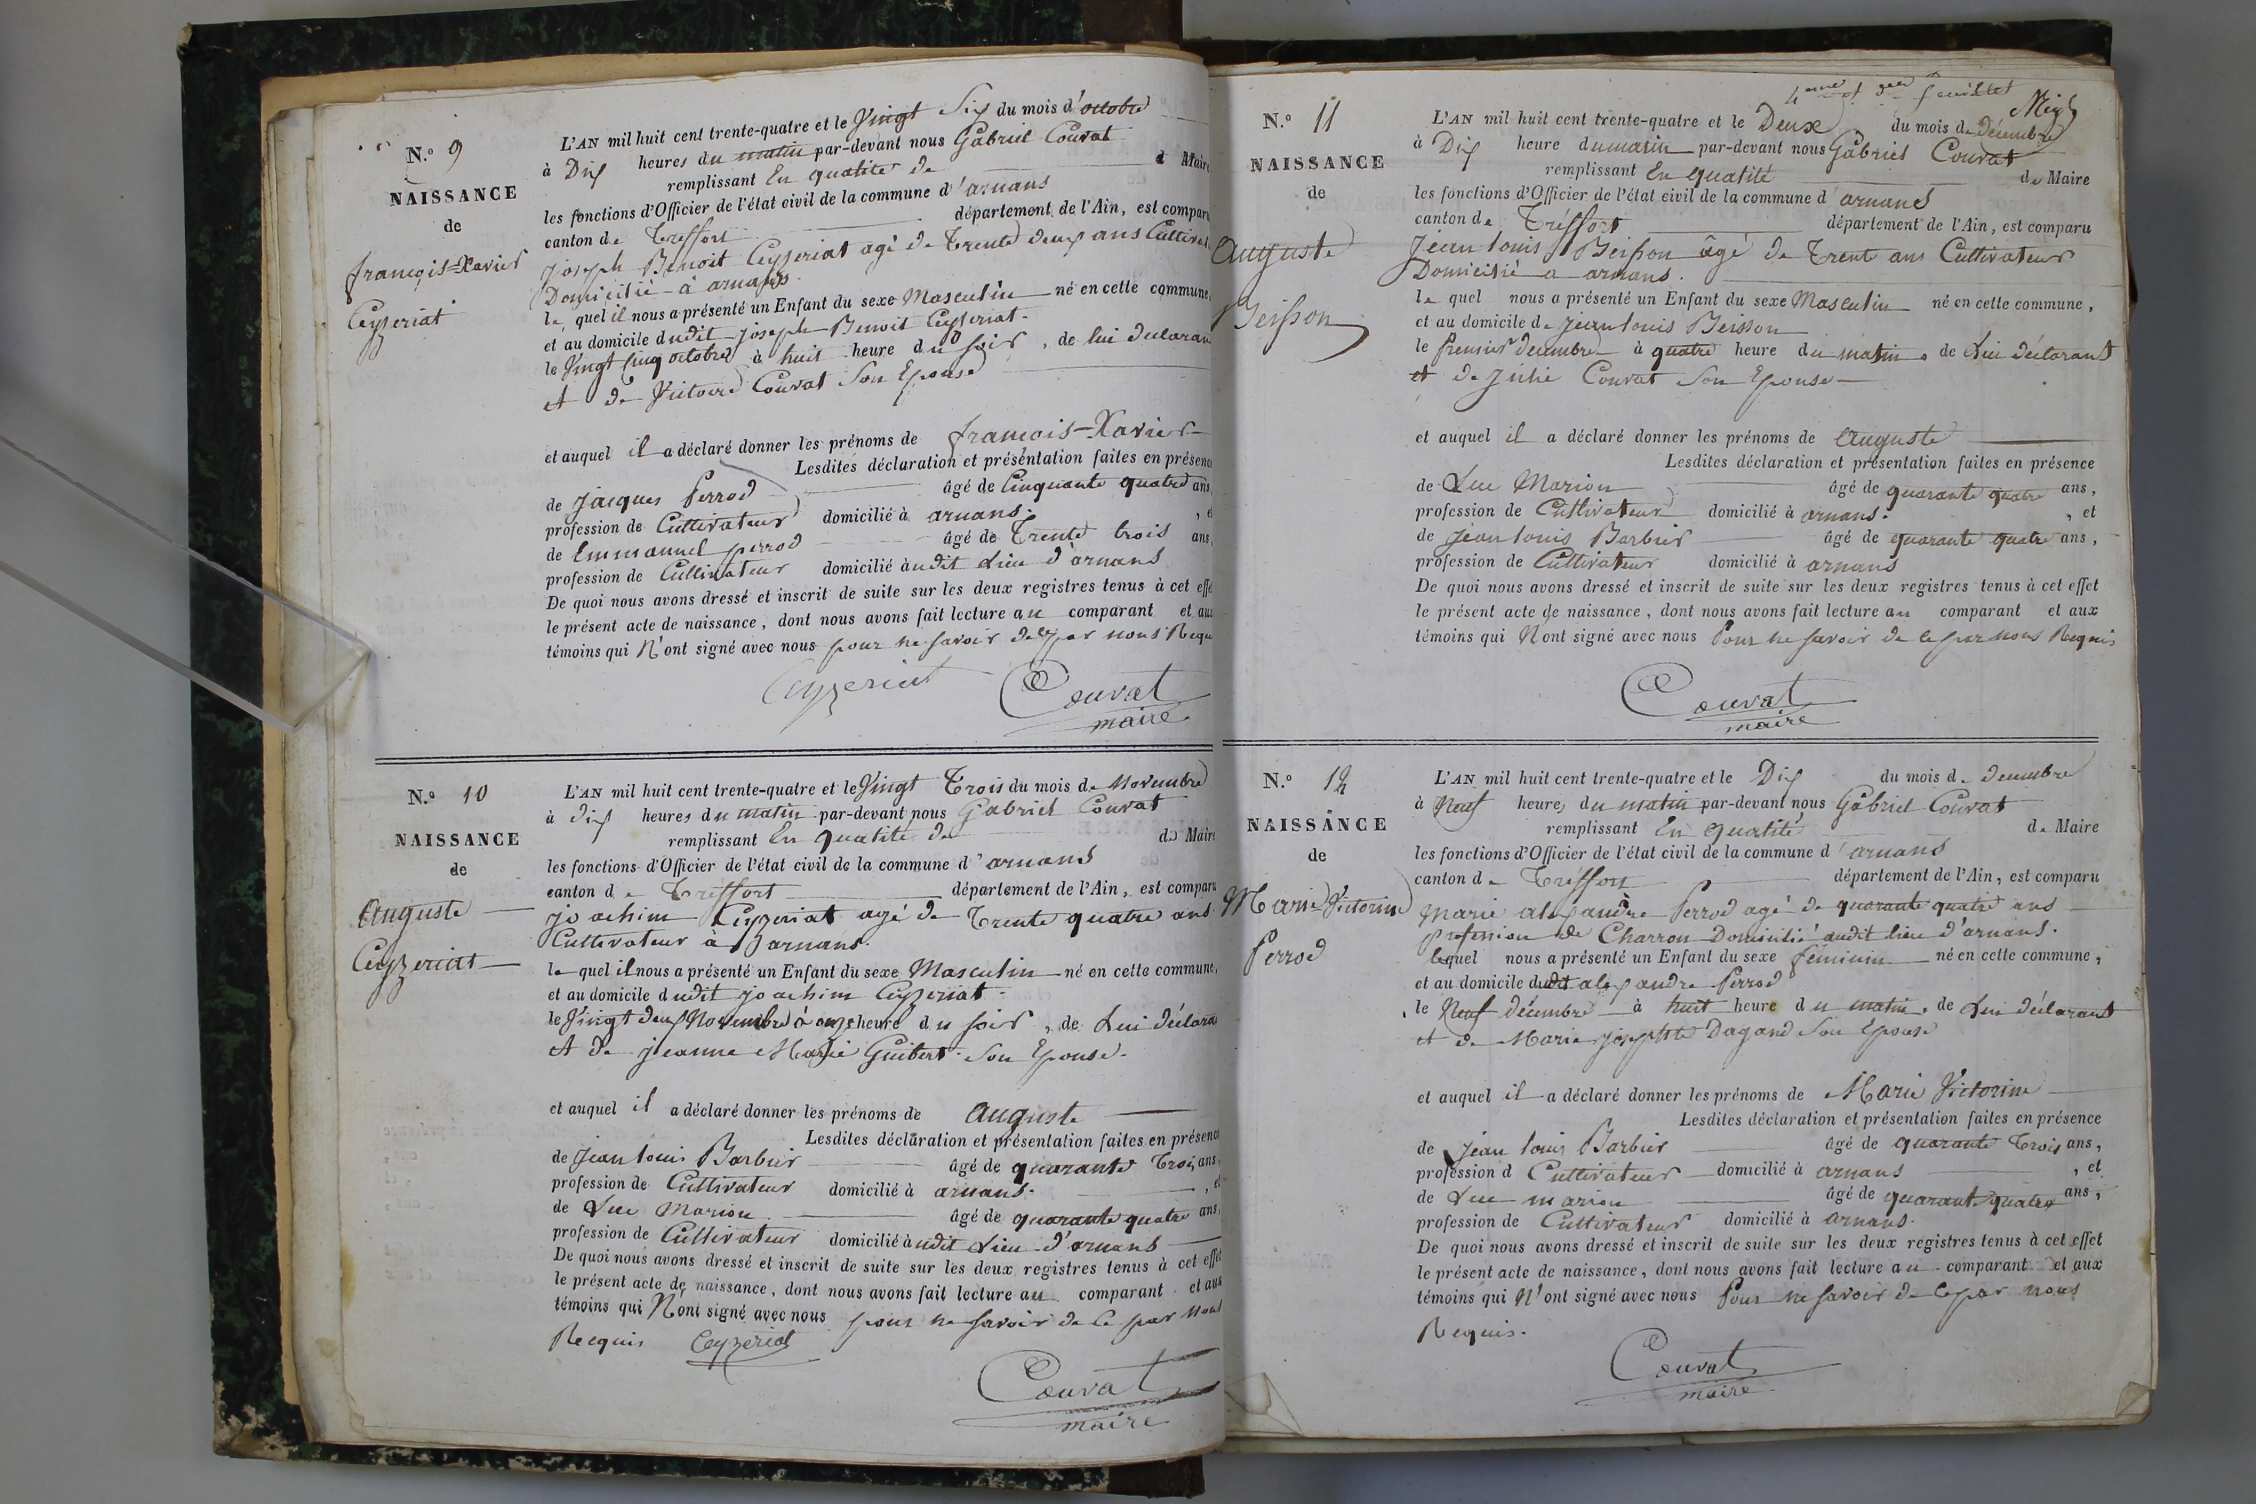 N.º 9
NAISSANCE
de
françois-Xavier
Ceyzeriat
L'AN mil huit cent trente-quatre et le Vingt Six du mois d'octobre
à Dix heures du matin par-devant nous Gabriel Couvat
remplissant En qualité de d Maire
les fonctions d'Officier de l'état civil de la commune d'arnans
canton de Treffort département de l'Ain, est comparu
joseph Benoit Ceyzeriat agé de Trente deux ans Cultivat
Domicilié à arnans
le quel il nous a présenté un Enfant du sexe Masculin né en cette commune,
et au domicile dudit joseph Benoit Ceyzeriat.
le Vingt Cinq octobre à huit heure du soir, de lui declarant
et de Victoire Couvat Son Epouse
et auquel il a déclaré donner les prénoms de françois-Xavier
Lesdites déclaration et présentation faites en présence
de jacques Perrod âgé de Cinquante quatre ans,
profession de Cultivateur domicilié à arnans. , et
de Emmanuel perrod âgé de Trente trois ans,
profession de Cultivateur domicilié àudit Lieu d'arnans
De quoi nous avons dressé et inscrit de suite sur les deux registres tenus à cet effet
le présent acte de naissance, dont nous avons fait lecture au comparant et aux
témoins qui N'ont signé avec nous pour ne savoir de ce par nous Requ
Ceyzeriat Couvat
maire
N.º 10
NAISSANCE
de
Auguste
Ceyzeriat
L'AN mil huit cent trente-quatre et le Vingt Trois du mois de Novembre
à dix heures du matin par-devant nous Gabriel Couvat
remplissant En qualité de de Maire
les fonctions d'Officier de l'état civil de la commune d'arnans
canton de Treffort département de l'Ain, est comparu
joachim Ceyzeriat agé de Trente quatre ans
Cultivateur à arnans.
le quel il nous a présenté un Enfant du sexe Masculin né en cette commune,
et au domicile dudit joachim Ceyzeriat.
le Vingt deux Novembre à onze heure du soir, de Lui déclara
et de jeanne Marie Guibert Son Epouse.
et auquel il a déclaré donner les prénoms de auguste
Lesdites déclaration et présentation faites en présence
de Jean louis Barbier âgé de quarante Trois ans,
profession de Cultivateur domicilié à arnans. , et
de Luc Marion âgé de quarante quatre ans,
profession de Cultivateur domicilié àudit Lieu d'arnans
De quoi nous avons dressé et inscrit de suite sur les deux registres tenus à cet effet
le présent acte de naissance, dont nous avons fait lecture au comparant et aux
témoins qui N'ont signé avec nous pour ne savoir de ce par nous
Requis Ceyzeriat
Couvat
maire
feuillet
N.º 11
NAISSANCE
de
Auguste
Beisson
L'AN mil huit cent trente-quatre et le Deux du mois de Décembre
à Dix heure du matin par-devant nous Gabriel Couvat
remplissant En qualité de Maire
les fonctions d'Officier de l'état civil de la commune d'arnans
canton de Tréffort département de l'Ain, est comparu
Jean louis Beisson âgé de Trente ans Cultivateur
Domicilié a arnans.
le quel nous a présenté un Enfant du sexe Masculin né en cette commune,
et au domicile de Jean louis Beisson
le premier decembre à quatre heure du matin, de Lui déclarant
et de Julie Couvat Son Epouse
et auquel il a déclaré donner les prénoms de Auguste
Lesdites déclaration et présentation faites en présence
de Luc Marion âgé de quarante quatre ans,
profession de Cultivateur domicilié à arnans. , et
de Jean louis Barbier âgé de quarante quatre ans,
profession de Cultivateur domicilié à arnans
De quoi nous avons dressé et inscrit de suite sur les deux registres tenus à cet effet
le présent acte de naissance, dont nous avons fait lecture au comparant et aux
témoins qui N'ont signé avec nous Pour ne savoir de ce par nous Requis
Couvat
maire
N.º 12
NAISSANCE
de
Marie Victorine
Perrod
L'AN mil huit cent trente-quatre et le Dix du mois de decembre
à Neuf heures du matin par-devant nous Gabriel Couvat
remplissant En qualité de Maire
les fonctions d'Officier de l'état civil de la commune d'arnans
canton de Tréffort département de l'Ain, est comparu
Marie alexandre Perrod agé de quarante quatre ans
profession de Charron Domicilié audit lieu d'arnans.
lequel nous a présenté un Enfant du sexe féminin né en cette commune,
et au domicile dudit alexandre Perrod
le Neuf décembre à huit heure du matin, de Lui déclarant
et de Marie josephte Dagand Son Epouse
et auquel il a déclaré donner les prénoms de Marie Victorine
Lesdites déclaration et présentation faites en présence
de jean louis Barbier âgé de quarante Trois ans,
profession d Cultivateur domicilié à arnans , et
de Luc marion âgé de quarante quatre ans,
profession de Cultivateur domicilié à arnans.
De quoi nous avons dressé et inscrit de suite sur les deux registres tenus à cet effet
le présent acte de naissance, dont nous avons fait lecture au comparant et aux
témoins qui N'ont signé avec nous Pour ne savoir de ce par nous
Requis.
Couvat
maire